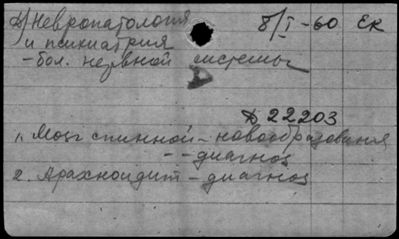 2) Невропатология 8/I-60 Ек
и психиатрия
- бол. нервной системы
Д 22203
1. Мозг спинной - новообразования
- - диагноз
2. Арахноидит - диагноз